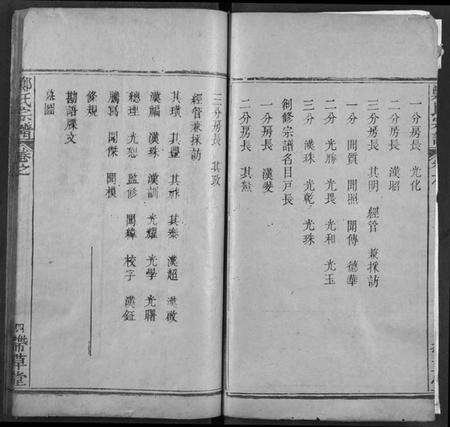 一分房長 光化
二分房長 漢昭
三分房長 其明 經管兼採訪
一分 開質 開照 開傳 德華
二分 光勝 光畏 光和 光玉
三分 漢珠 光乾 光珠
創修宗譜名目戶長
一分房長 漢愛
二分房長 其
三分房長 其致
經管兼採訪
其璜 其豐 其 其泰 漢超 漢政
漢福 漢珠 漢訓 光耀 光學 光曙
總理 光恕 監修 開 校字 漢鈺
騰寫 開傑 開模
修規
勘語牒文
墓圖
鄭氏宗譜 卷之
四 帶草堂